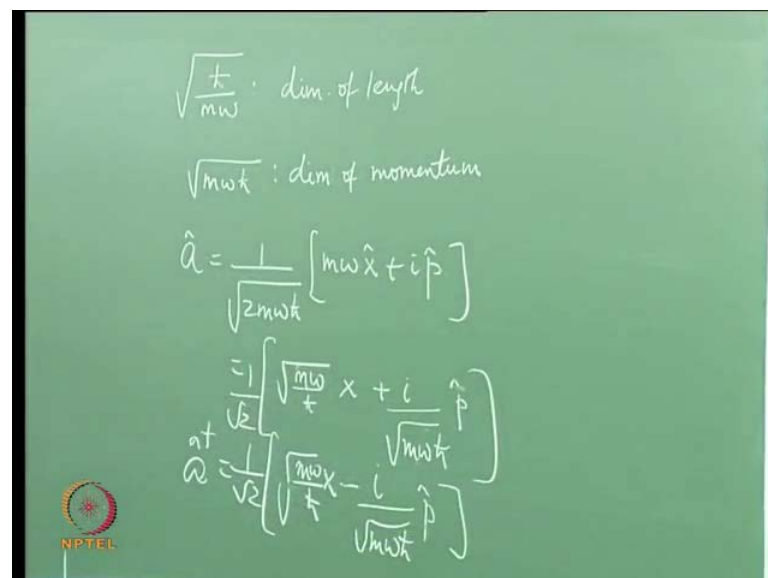 √(ħ/mω) · dim. of length
√(mωħ) : dim of momentum
â = 1/√(2mωħ) [mωx̂ + ip̂]
= 1/√2 [√(mω/ħ) x + i/√(mωħ) p̂]
â† = 1/√2 [√(mω/ħ) x − i/√(mωħ) p̂]
NPTEL